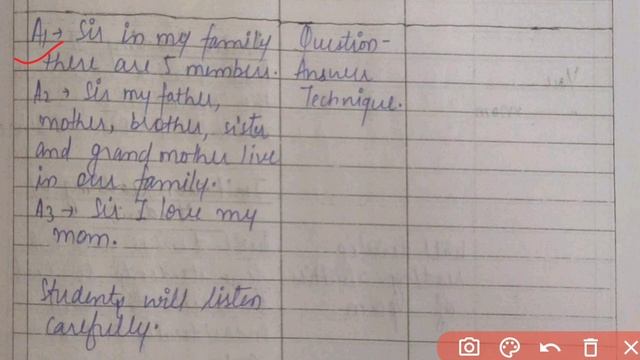 A1 → Sir in my family
there are 5 members.
A2 → Sir my father,
mother, brother, sister
and grand mother live
in our family.
A3 → Sir I love my
mom.
Students will listen
carefully.
Question-
Answer
Technique.